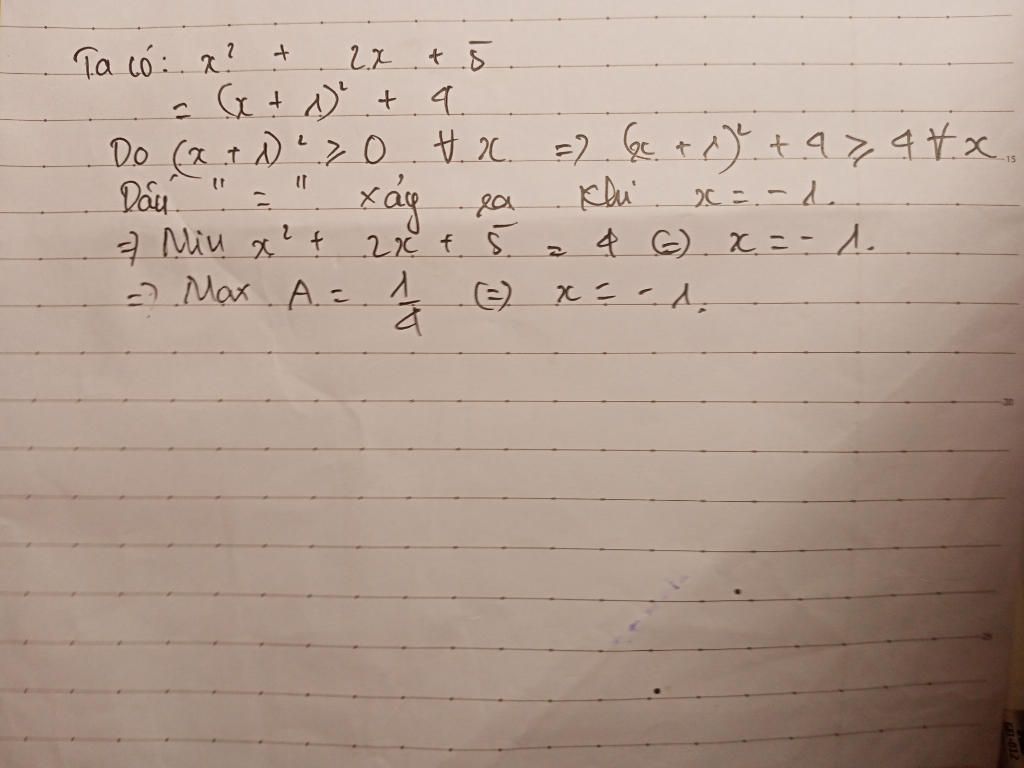 Ta có: x² + 2x + 5
= (x + 1)² + 4
Do (x + 1)² ≥ 0 ∀ x => (x + 1)² + 4 ≥ 4 ∀ x
Dấu "=" xảy ra khi x = - 1.
=> Min x² + 2x + 5 = 4 (=) x = - 1.
=> Max A = 1/4 (=) x = - 1.
15
20
25